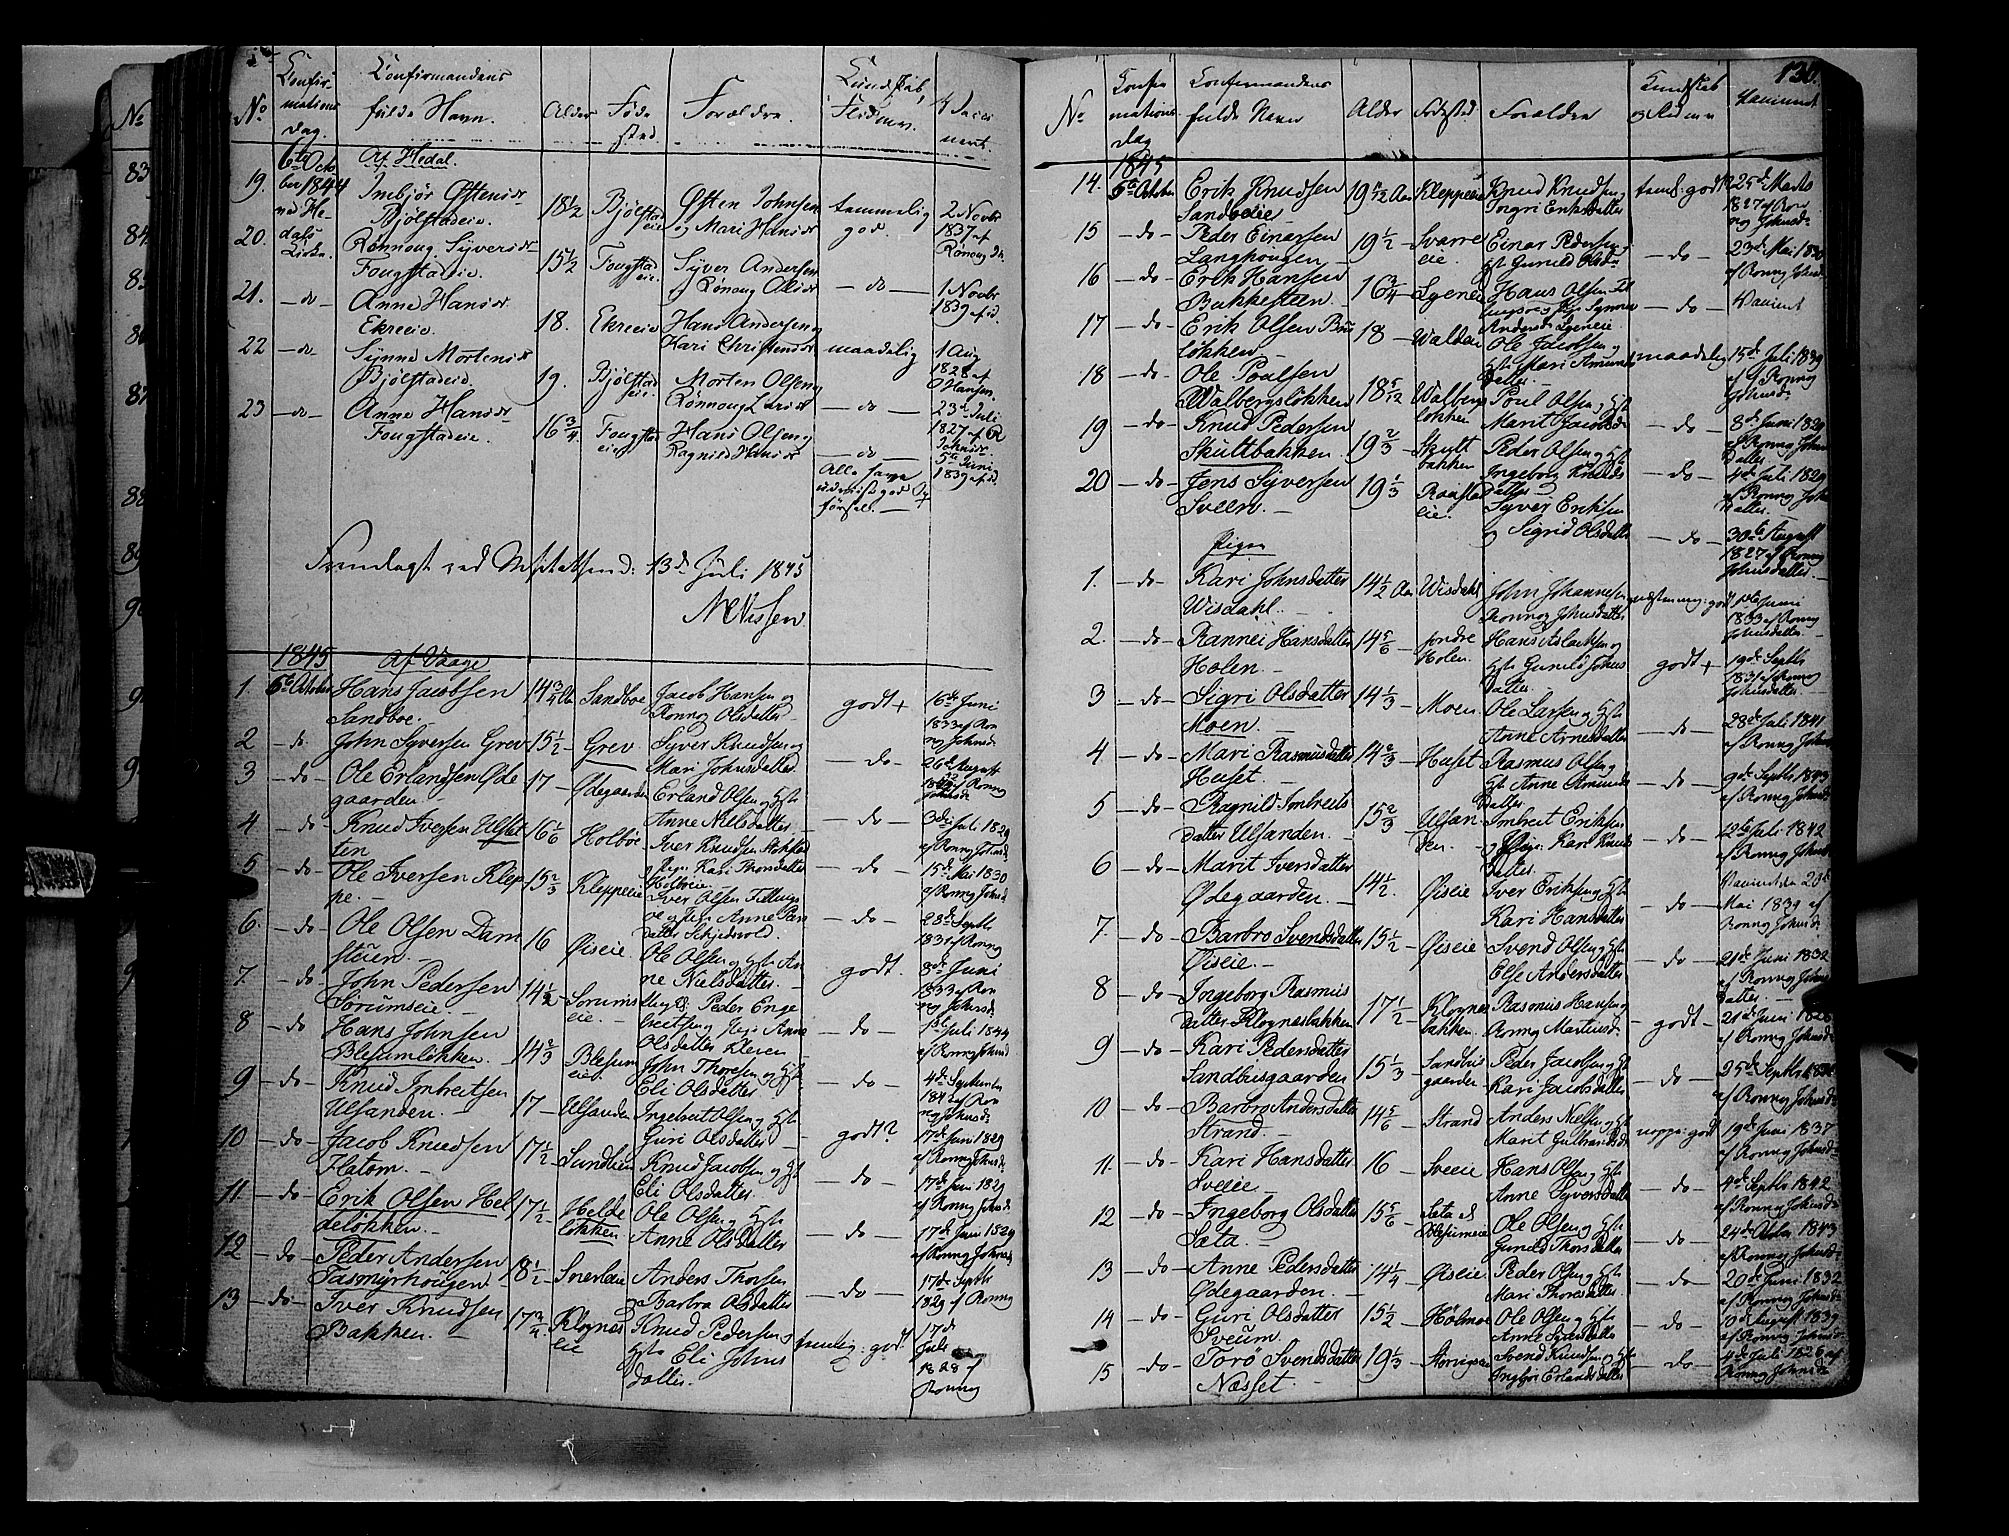 Confir-
mations
dag.
Confirmandens
fulde Navn.
No
Alder
Føde
sted.
Forældre.
Kundskab,
Flid m.v.
Vacci
nert.
6te Octo
ber 1844
ved He
dals
Kirke.
Af Hedal.
19. Imbjør Østensdr
Bjølstadeie. 18 1/2 Bjølstad
eie Østen Johnsen
og Mari Hansdr temmelig
god. 2 Novbr
1837 af
Rønnoug Jd.
20. Rønnoug Syversdr
Fougstadeie. 15 1/2 Fougstad
eie. Syver Andersen
og Rønoug Olsdr - do - 1 Novbr
1839 af id.
21. - do - Anne Hansdr
Ekreeie. 18. Ekreeie Hans Andersen og
Kari Christensdr maadelig 1 Aug
1828 af
O Hansen.
22 - do - Synne Mortensdr
Bjølstadeie. 19. Bjølstad
eie. Morten Olsen og
Rønnoug Larsdr - do - 23de Juli
1827 af R
Johnsdr.
23 - do - Anne Hansdr
Fougstadeie. 16 3/4 Fougstad
eie Hans Olsen og
Ragnild Hansdr - do - 5te Juni
1839 af id.
Alle have
udviist god Op
førsel. -
Fremlagt ved Visitatsen d: 13de Juli 1845
N Nissen
1845 Af Vaage
1. 5te October Hans Jacobsen
Sandboe. - 14 3/4 Aar Sandboe Jacob Hansen og
Ronnog Olsdatter - godt + 16de Juni
1833 af Ron
nog Johnsd:
2 - do. John Syversen Grev 15 1/2 - Grev Syver Knudsen og
Mari Johnsdatter - do - 26de August
1832 af Ronnog
Johnsd:
3 - do - Ole Erlandsen Øde
gaarden. - 17 - Ødegaarden Erland Olsen og Hst:
Anne Nielsdatter. - do - 3de Juli 1829
af Ronnog Johnsd:
4 - do - Knud Iversen Ulfst
ten 16 1/6 Holboe Iver Knudsen
og Pige Kari Thorsdatter
Holboeie - do - 15de Mai 1830
af Ronnog Johnsd:
5 - do - Ole Iversen Klep
pe. - 15 2/3 Kleppeeie Iver Olsen
og Pige Anne
datter - do - 23de Septbr
1831 af Ronnog
6. - do - Ole Olsen Dam
steien. - 16 Øiseie. Ole Olsen og Hst: An
ne Nielsdatter. - godt. 8de Juni
1833 af Ron
nog Johnsd:
7. - do - John Pedersen
Sorumseie. - 14 1/2 - Sorums
eie. - Ungk. Peder Enge
bretsen og Pige Anne
Olsdatter Kleven - do - 1ste Juli 1844
af Ronnog Johnsd
8 - do Hans Johnsen
Blesumløkken. - 14 2/3 Blesum
eie. John Thoresen og Hst:
Eli Olsdatter. - do - 4de September
1842 af Ron
nog Johnsd:
9 - do - Knud Imbretsen
Ulfanden. - 17 - Ulfanden Ingebret Olsen og Hst:
Guri Olsdatter - godt? 17de Juni 1829
af Ronnog Johnsd:
10 - do - Jacob Knudsen
Flatom. - 17 1/2 - Sundteie Knud Jacobsen og Hst
Eli Olsdatter. - do - 17de Juni 1829
af Ronnog Johnsd
11. - do - Erik Olsen Hel
deløkken. - 17 1/2 Helde
løkken Ole Olsen og Hst:
Anne Olsdatter - do - 17de Juni 1829
af Ronnog Johnsd
12 - do - Peder Andersen
Tasmyrhougen 18 1/2 - Snerleeie Anders Thorsen
og Barbra Olsdatter - do - 17de Septbr
1829 af Ronnog
13 - do - Iver Knudsen
Bakken. - 17 3/4 Klognæs
eie Knud Pedersen og
Hst: Eli Johns
datter. temelig: godt 17de
Juli
1828 af
Ronnog
130.
No Confir
mations
dag Confirmandens
fulde Navn Alder Fødested Forældre Kundskab
og Sed m m Vaccinert
1845
14. 5te October Erik Knudsen
Sandboeie - 19 5/12 Aar Kleppeeie Knud Knudsen og
Ingri Eriksdatter temel: godt 25de Marts
1827 af Ron
nog Johnsd:
15 - do - Peder Einarsen
Langhougen - 19 1/2 - Svarre
eie. Einar Pedersen og
Hst Gunild Olsdr - do - 23de Mai 1830
af Ronnog Johnsd:
16 - do - Erik Hansen
Bakkesteen. 16 3/4 - Hans Olsen
Pige Synnev
Andersd: - do - Vaccinert
17 - do - Erik Olsen Bru
løkken - 18 - Walden Ole Jacobsen og
Hst: Mari Amunds
datter. - maadelig 15de Juli 1839
af Ronnog
Johnsd:
18 - do - Ole Poulsen
Walbergsløkken 18 5/12 Walbergs
løkken Poul Olsen og Hst:
Marit Jacobsd: - do - 8de Juni 1829
af Ronnog Johns
datter. -
19 - do - Knud Pedersen
Skultbakken. 19 2/3 Skult
bakken Peder Olsen og Hst
Ingeborg Knuds
datter - do - 4de Juli 1829
af Ronnog Johns
datter. -
20 - do - Jens Syversen
Sveen. - 19 1/3 eie. Syver Eriksen
og Sigrid Olsdatter - do - 30te August
1827 af Ronnog
Johnsdatter. -
Piger
1. - do - Kari Johnsdatter
Wisdahl. - 14 1/2 Aar Wisdahl John Johannesen og
Ronnog Johnsdatter godt 1ste Juni
1833 af Ronnog
Johnsdatter -
2. - do - Rannei Hansdatter
Holen. - 14 5/6 søndre
Holen. Hans Aslaksen og
Hst: Gunild Johns
datter. godt + 19de Septbr
1831 af Ronnog
Johnsdatter. -
3 - do - Sigri Olsdatter
Moen. - 14 1/3 - Moen Ole Larsen og Hst:
Anne Arnesdatter - do - 28de Juli 1841
af Ronnog Johnsd
4 - do - Mari Rasmusdatter
Huset. - 14 2/3 - Huset Rasmus Olsen og
Hst Anne Amunds
datter. - do - 9de Septbr 1843
af Ronnog Johnsd:
5 - do - Ragnild Imbrets
datter Ulfanden. 15 2/3 Ulfan
den. Imbret Eriksen
og Pige: Kari Knuds
datter. - do - 12te Juli 1842
af Ronnog Johnsd:
6 - do - Marit Iversdatter
Ødegaarden. - 14 1/2. Øiseie Iver Eriksen og Hst
Kari Hansdatter - do - Vaccinert den 20de
Mai 1839 af
Ronnog Johnsd:
7. - do - Barbro Svendsdatter
Øiseie. - 15 1/2 - Øiseie Svend Olsen og Hst:
Else Andersdatter - do - 21de Juni 1832
af Ronnog Johns
datter. -
8 - do - Ingeborg Rasmus
datter Klognæsbakken 17 1/2 Klognæs
bakken. Rasmus Hansen og
Ronnog Mortensd: - godt - 21de Juni 1828
af Ronnog Johnsd:
9 - do - Kari Pedersdatter
Sandbusgaarden 15 1/3 Sandbus
gaarden Peder Jacobsen og Hst:
Kari Jacobsdatter - do - 25de Septbr 1830
af Ronnog Johnsd:
10 - do - Barbro Andersdatter
Strand. - 14 5/6 - Strand Anders Nielsen og Hst
Marit Gulbransd: neppe: godt 19de Juni 1837
af Ronnog Johnsd:
11. - do - Kari Hansdatter
Sveie. - 16 - Sveeie Hans Olsen og Hst
Anne Syversdatter - do - 4de Septbr 1842
af Ronnog Johnsd:
12 - do - Ingeborg Olsdatter
Sæta. - 15 5/6 Sæta el
Blesumeie Ole Olsen og Hst:
Gunild Thorsdatter - do - 24de Octbr 1843
af Ronnog Johnsd:
13 - do - Anne Pedersdatter
Ødegaarden. - 14 1/4 - Øiseie Peder Olsen og Hst:
Mari Thoresdatter - do - 20de Juni 1832
af Ronnog Johnsd:
14 - do - Guri Olsdatter
Sveum. - 15 1/2 - Holmoe Ole Olsen og Hst:
Anne Syversdatter - do - 10de August 1839
af Ronnog Johnsd:
15 - do - Torø Svendsdatter
Næsset. - 19 1/3 - Svend Knudsen og Hst
Ingbor Erlandsdatter - do - 4de Juli 1826 af
Ronnog Johnsd:
83
84
85
86
87
88
89
90